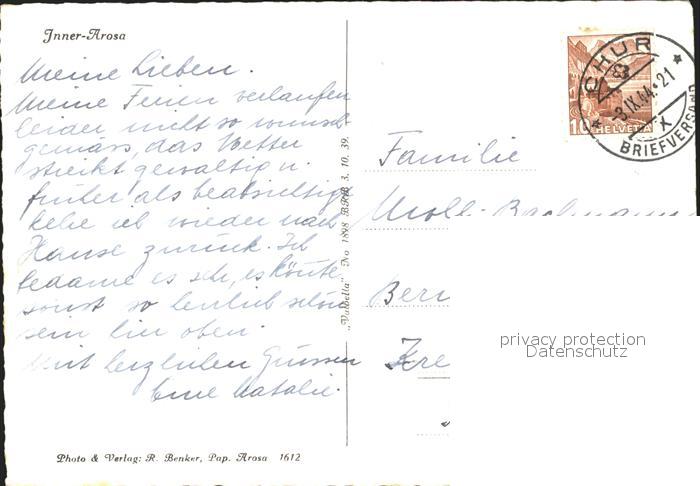 Inner-Arosa
Meine Lieben.
Meine Ferien verlaufen
leider nicht so wunsch-
gemäss, das Wetter
streikt gewaltig u.
früher als beabsichtigt
kehre ich wieder nach
Hause zurück. Ich
bedaure es sehr, es könnte
sonst so herrlich schön
sein hier oben.
Mit herzlichen Grüssen
Eure Natalie.
Photo & Verlag: R. Benker, Pap. Arosa 1612
„Valbella" No 1898 BRB 3. 10. 39.
CHUR
8
-3.IX.44.-21
X
BRIEFVERSAND
10 HELVETIA
Familie
Moll-
Bern
Kre
privacy protection
Datenschutz